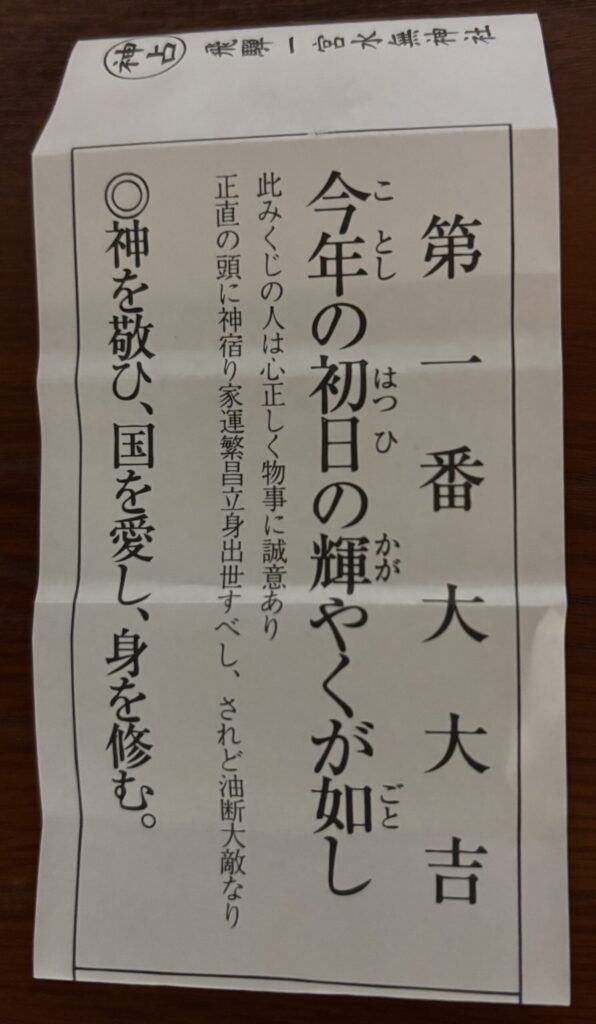 神占 飛騨一宮水無神社
第一番大大吉
今年の初日の輝やくが如し
こ とし はつ ひ かが ごと
此みくじの人は心正しく物事に誠意あり
正直の頭に神宿り家運繁昌立身出世すべし、されど油断大敵なり
◎神を敬ひ、国を愛し、身を修む。